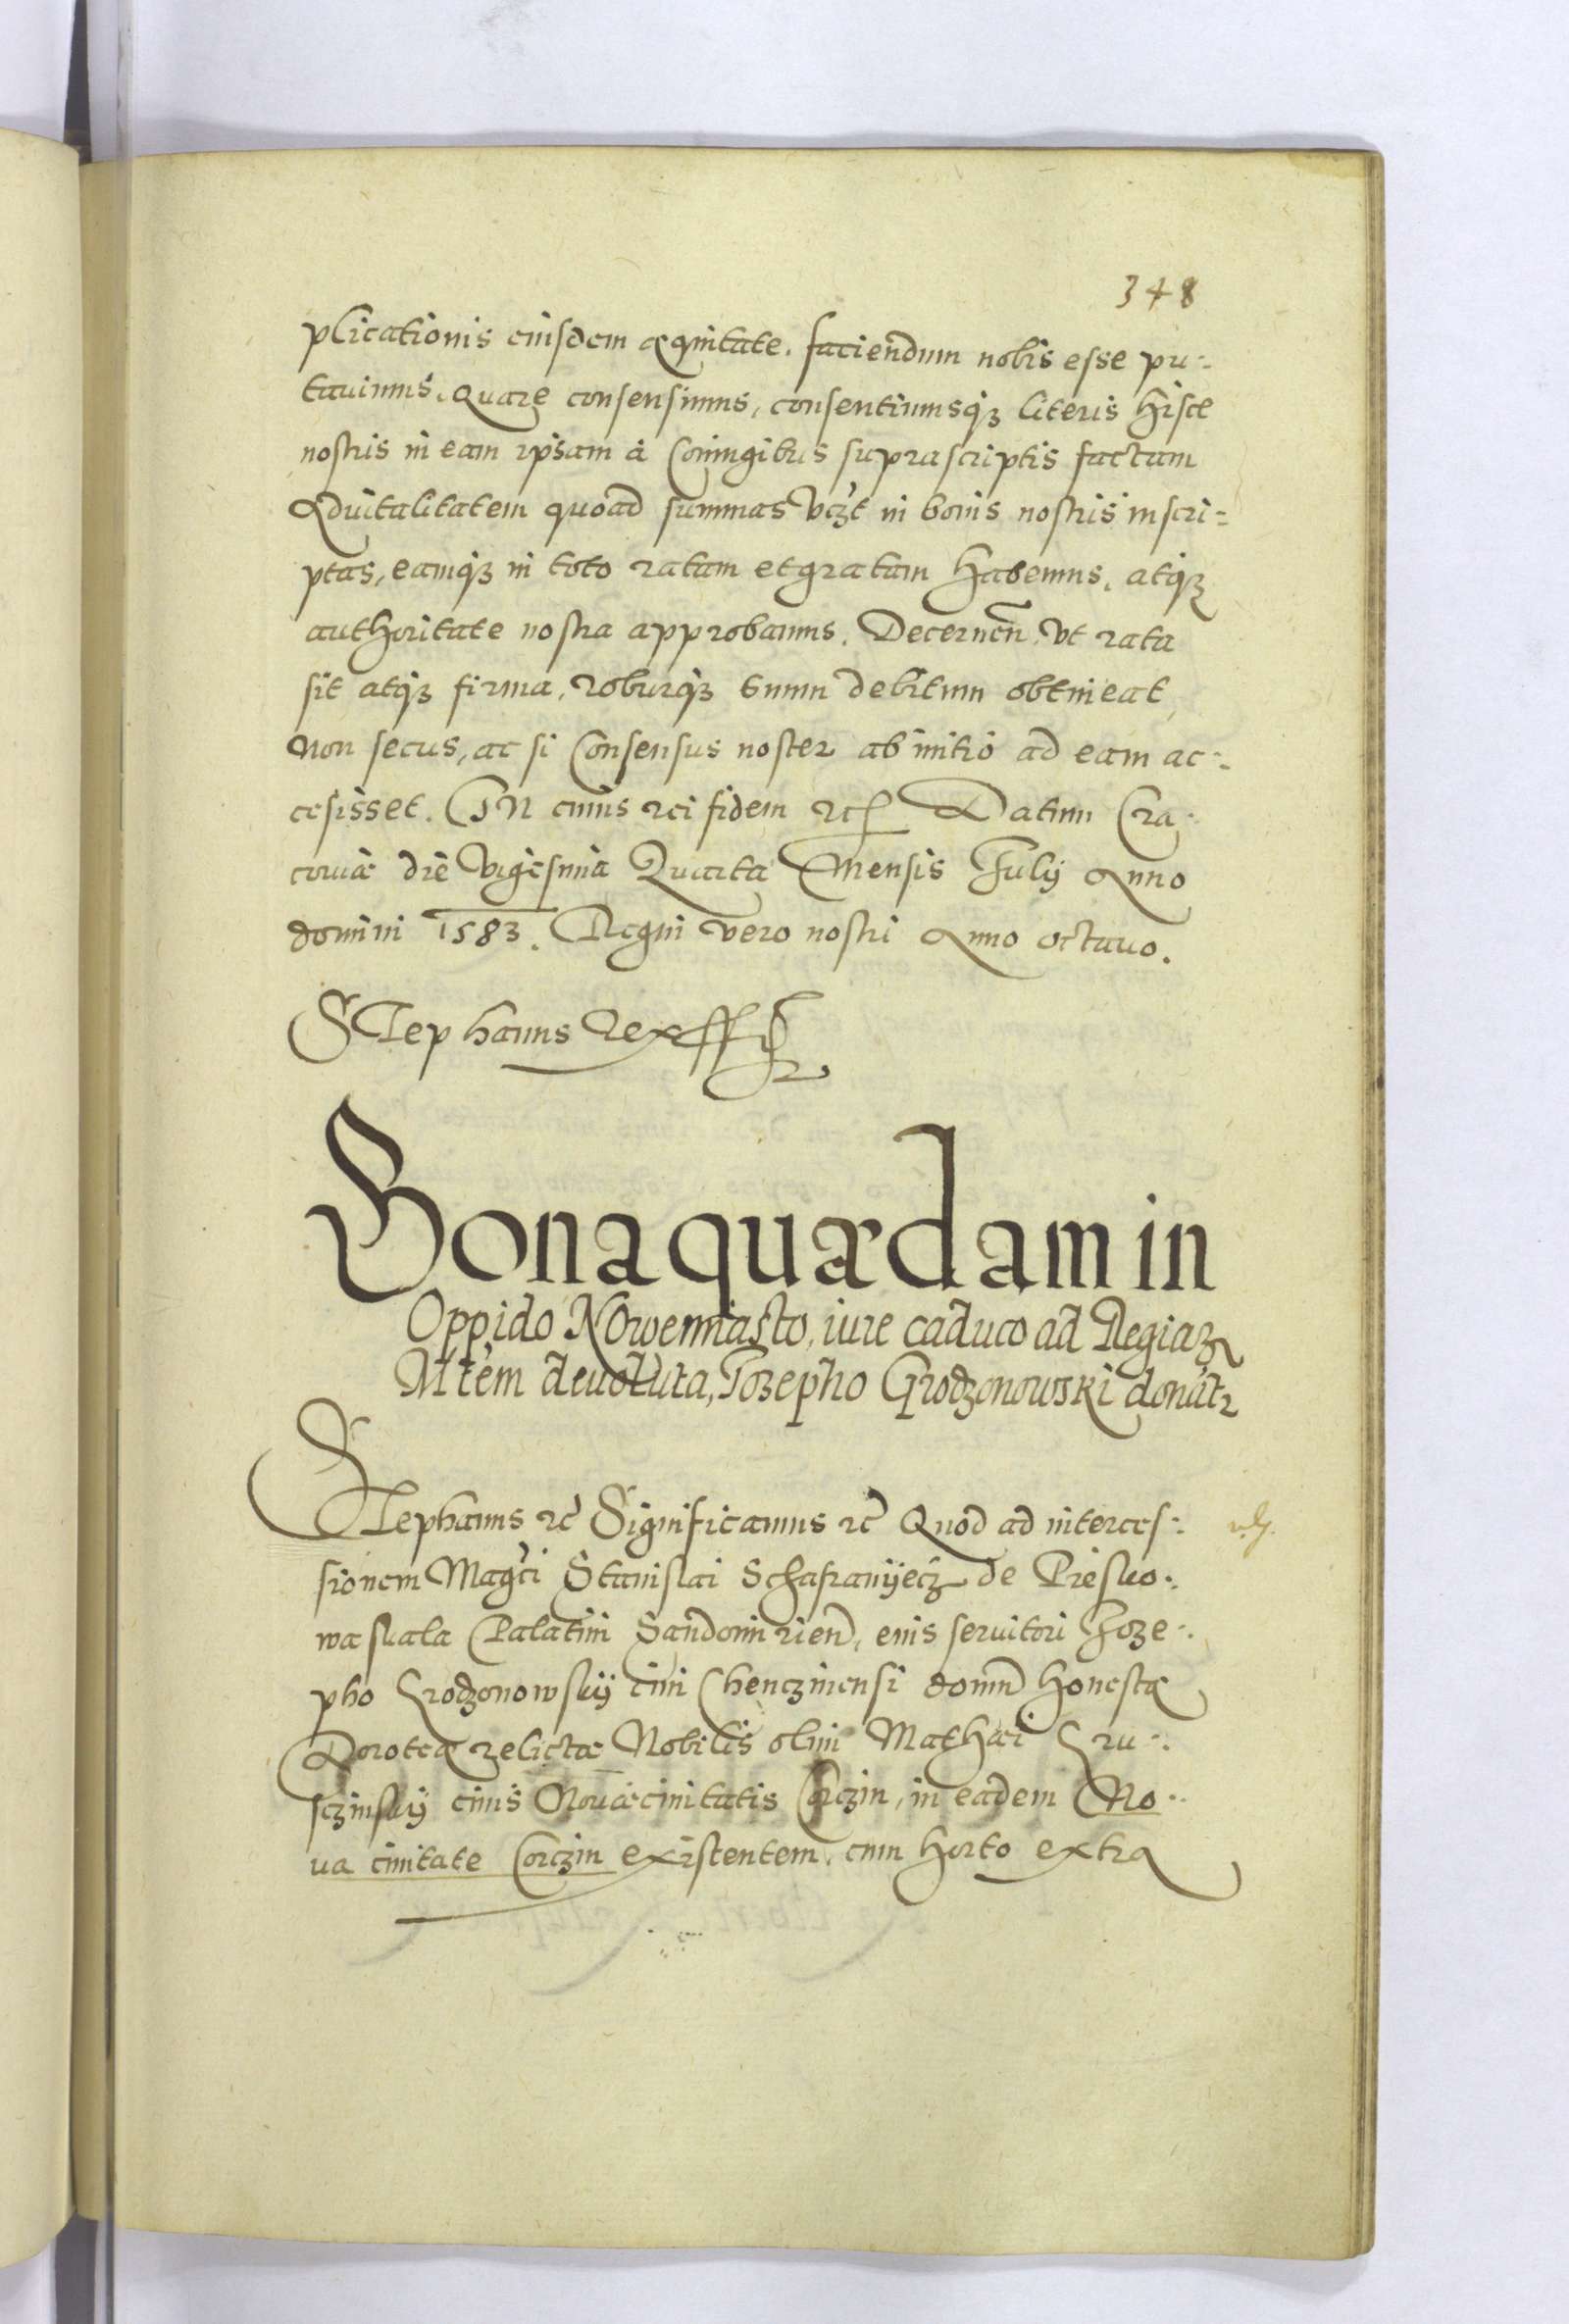 348
plicationis eiusdem æquitate. faciendum nobis esse pu-:
tauimus. Quare consensimus, consentiumsq₃ literis hisce
nostris in eam ipsam à Coniugibus suprascriptis factam
Aduitalitatem quoad summas vcꝫt in bonis nostris inscri-:
ptas, eamq₃ in toto ratam et gratam habemus, atq₃
authoritate nostra approbamus. Decernen̄. vt rata
sit atq₃ firma, roburq₃ suum debitum obtineat,
Non secus, ac si Consensus noster ab initio ad eam ac-:
cesisset. IN cuius rei fidem etc Datum Cra-:
couiæ die Vigesima Quarta Mensis Iulij Anno
domini 1583. Regni vero nostri Anno octauo.
Stephanus Rex ssr
Bona quædam in
Oppido Nowemiasto, iure caduco ad Regiaꝫ
Mtem deuoluta, Iozepho Grodzonowski donatr
Stephanus etc Significamus etc Quod ad interces-:
sionem Magci Stanislai Schafranyecz de Piesko-:
wa skala Palatini Sandomirien̄, eius seruitori Ioze-:
pho Grodzonowskij ciui Chenczinensi domum̄ honestæ
Doroteæ relictæ Nobilis olim Mathæi Gru-:
sczinskij ciuis Nouæ ciuitatis Corczin, in eadem No-:
ua ciuitate Corczin existentem. cum horto extra